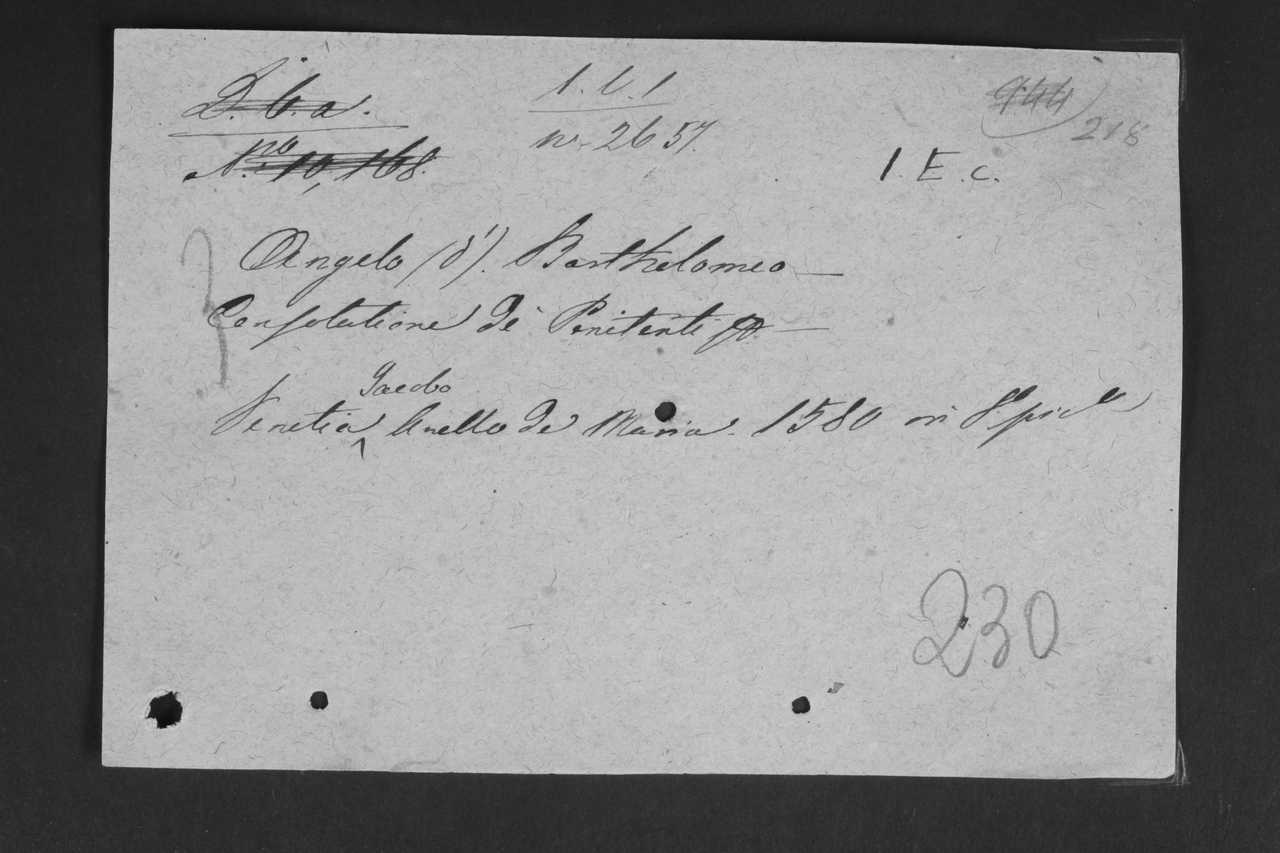 D. b. a.
No. 10,168.
1. b. 1
no. 2657.
944
218
1. E. c.
Angelo (d'). Bartholomeo —
Consolatione de' Penitenti —
Venetia Jacobo Anello de Maria. 1580 in 8°
230